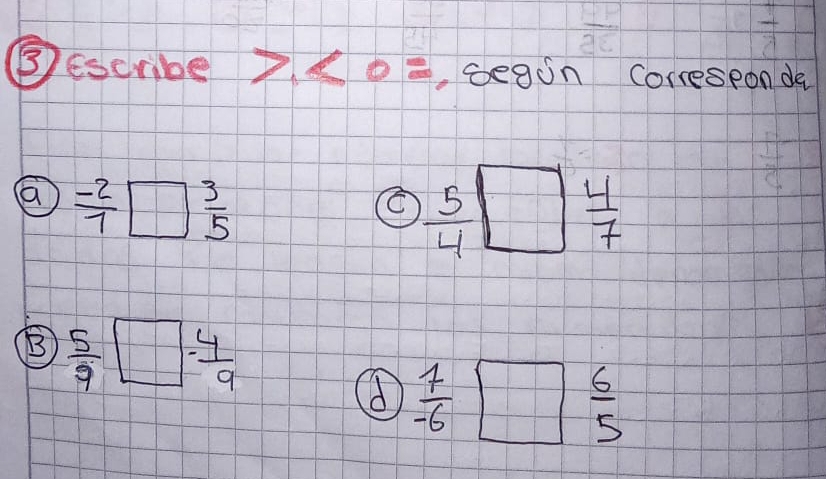 ③ Escribe >, < o =, según corresponda
ⓐ -2/7 □ 3/5
ⓒ 5/4 □ 4/7
Ⓑ 5/9 □ -4/9
ⓓ 7/-6 □ 6/5